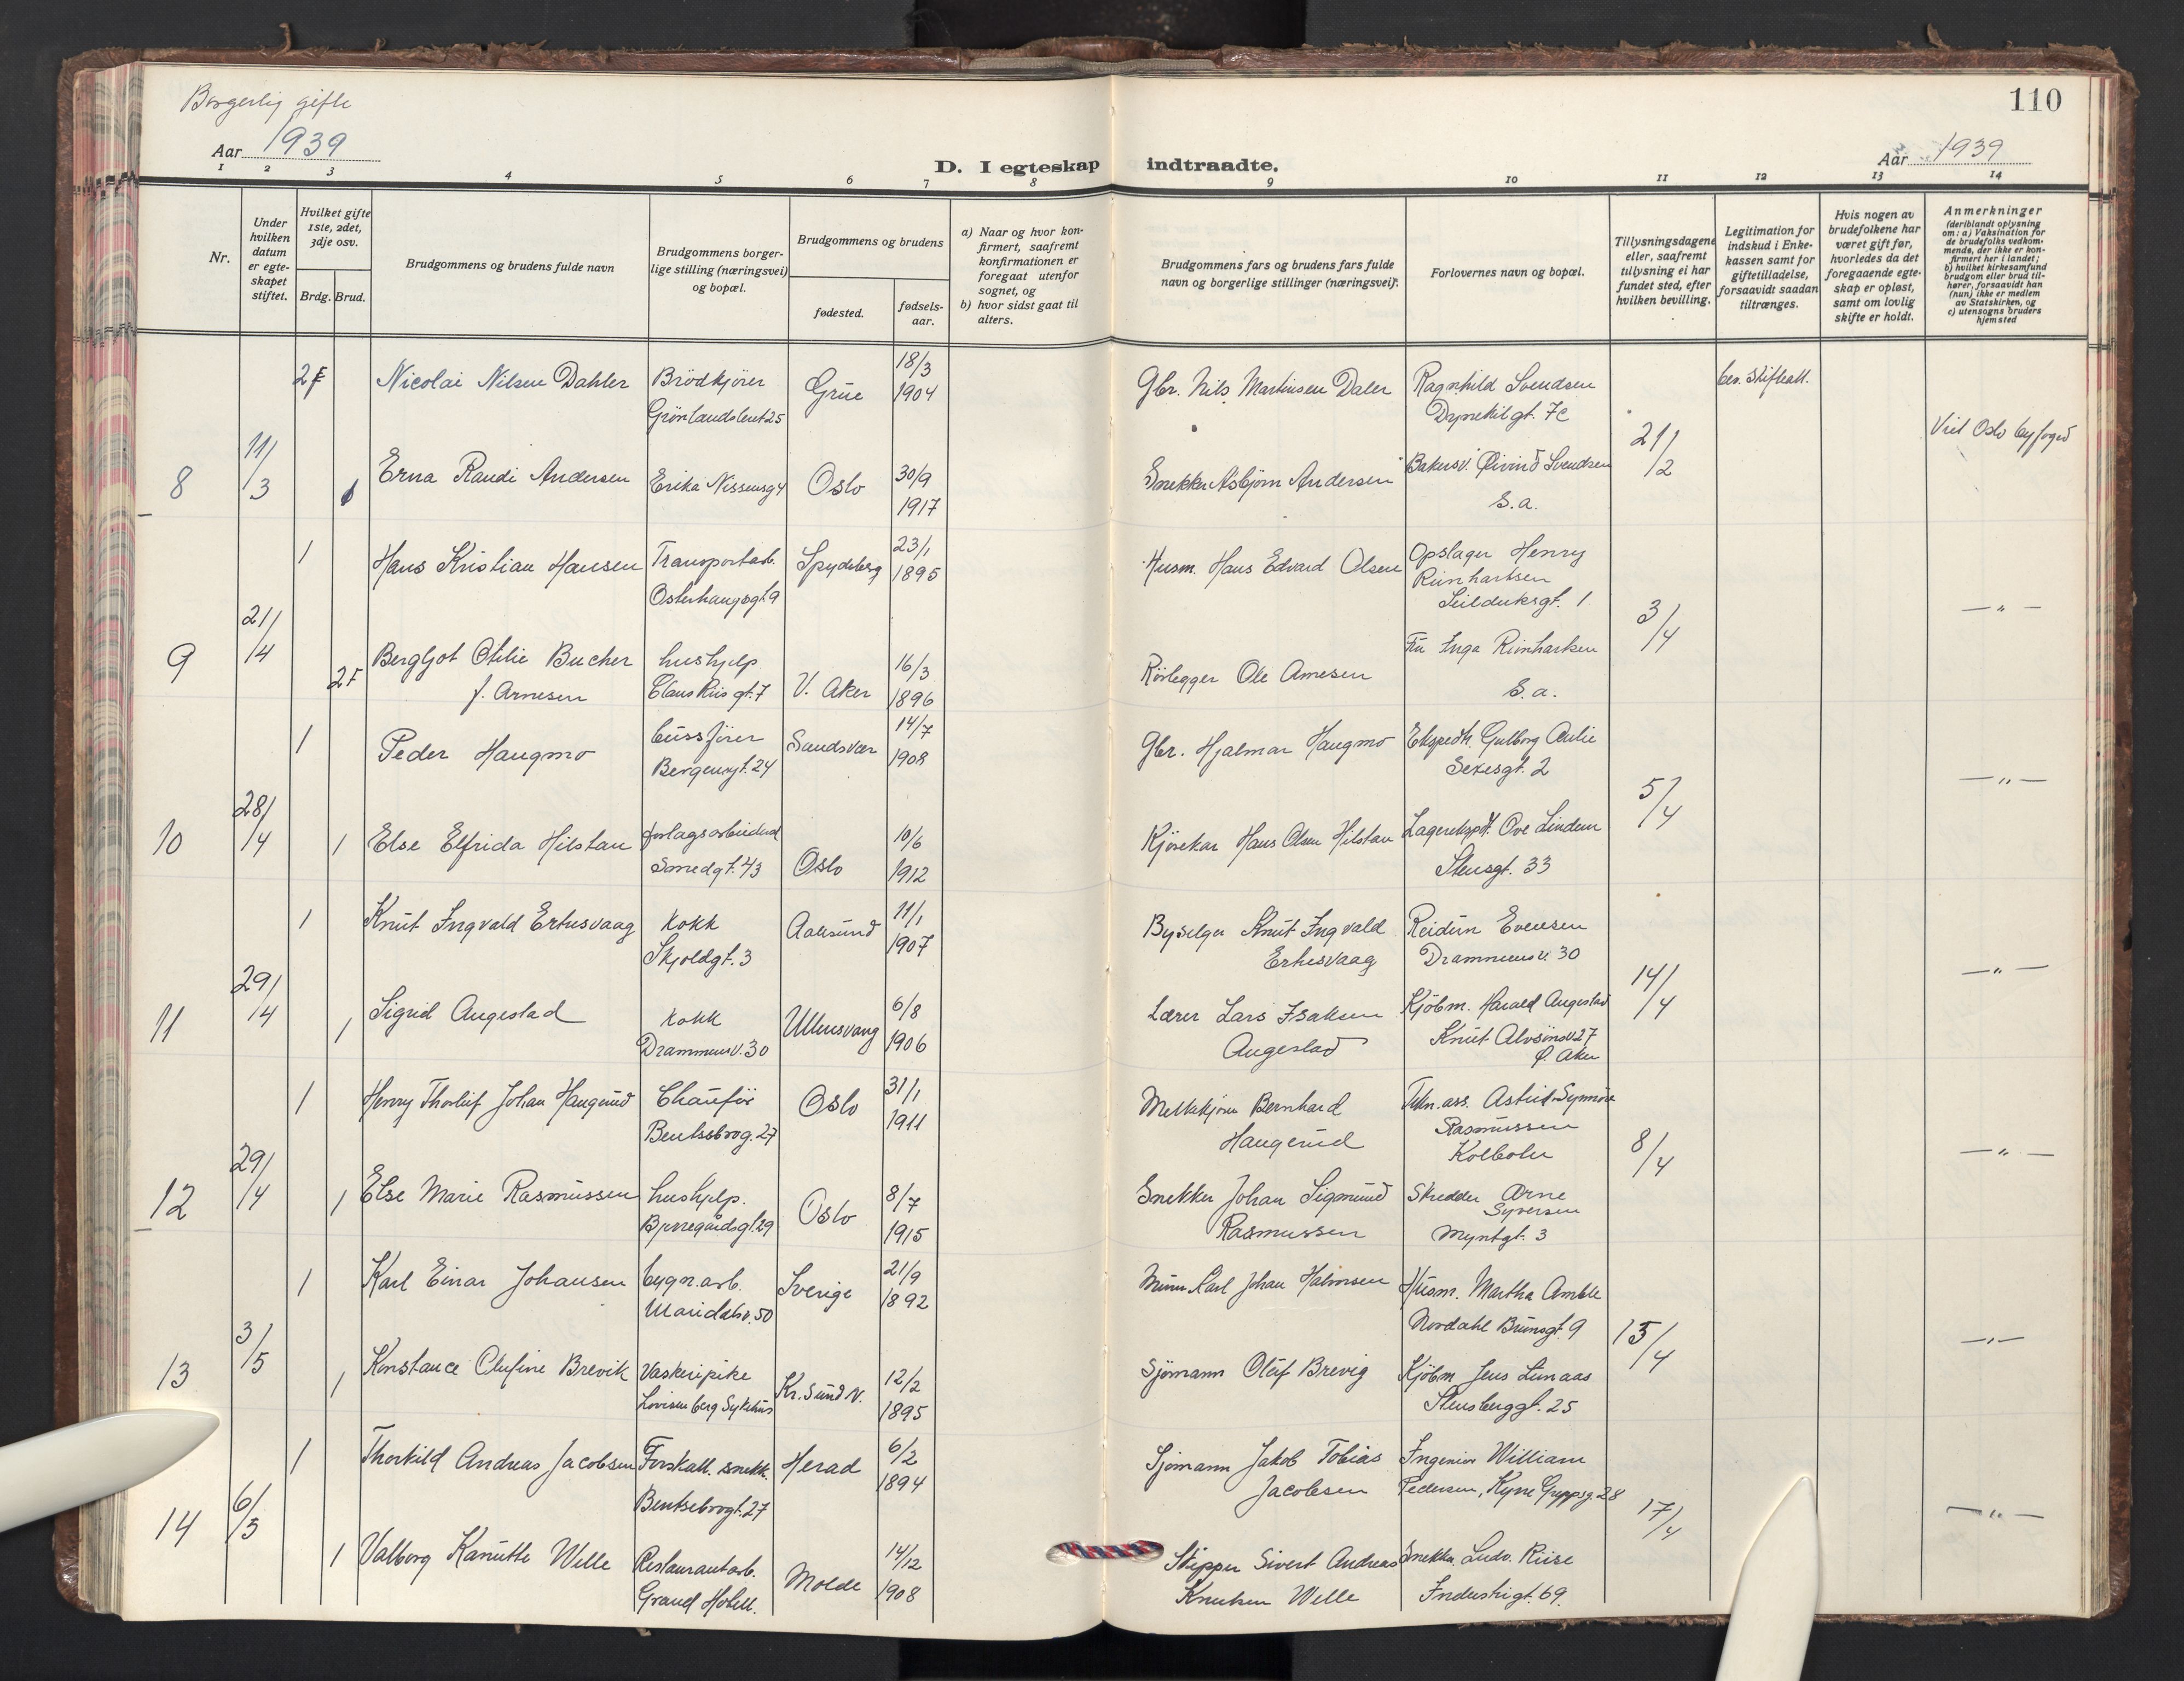 Borgerlig gifte
110
Aar 1939
D. I egteskap indtraadte.
Aar 1939
1 2 3 4 5 6 7 8 9 10 11 12 13 14
Nr.
Under hvilken datum er egte-skapet stiftet.
Hvilket gifte 1ste, 2det, 3dje osv.
Brdg. Brud.
Brudgommens og brudens fulde navn
Brudgommens borger-lige stilling (næringsvei) og bopæl.
Brudgommens og brudens
fødested.
fødsels-aar.
a) Naar og hvor kon-firmert, saafremt konfirmationen er foregaat utenfor sognet, og
b) hvor sidst gaat til alters.
Brudgommens fars og brudens fars fulde navn og borgerlige stillinger (næringsvei).
Forlovernes navn og bopæl.
Tillysningsdagene eller, saafremt tillysning ei har fundet sted, efter hvilken bevilling.
Legitimation for indskud i Enke-kassen samt for giftetilladelse, forsaavidt saadan tiltrænges.
Hvis nogen av brudefolkene har været gift før, hvorledes da det foregaaende egte-skap er opløst, samt om lovlig skifte er holdt.
Anmerkninger (deriblandt oplysning om: a) Vaksination for de brudefolks vedkom-mende, der ikke er kon-firmert her i landet; b) hvilket kirkesamfund brudgom eller brud til-hører, forsaavidt han (hun) ikke er medlem av Statskirken, og c) utensogns bruders hjemsted
2F Nicolai Nilsen Dahler Brödkjörer Grue 18/3 1904 Gbr. Nils Martinsen Daler Ragnhild Svendsen bev. Skifteatt.
Grönlandsleret 25 Dynekilgt. 7c
8 11/3 1 Erna Randi Andersen Erika Nissensg 4 Oslo 30/9 1917 Snekker Asbjörn Andersen Bakersv. Öivind Svendsen 21/2 Viet Oslo byfoged
S.a.
1 Hans Kristian Hansen Transportarb. Spydeberg 23/1 1895 Husm. Hans Edvard Olsen Opslager Henry Rinhartsen
Osterhaugsgt. 9 Seilduksgt. 1
9 21/4 2F Bergljot Otilie Bucher hushjelp V. Aker 16/3 1896 Rörlegger Ole Arnesen Fru Inga Rinhartsen 3/4 — " —
f. Arnesen Claus Riis gt. 7 S.a.
1 Peder Haugmo bussfjörer Sandsvær 14/7 1908 Gbr. Hjalmar Haugmo Ekspedtr. Gulborg Aulie
Bergensgt. 24 Sexesgt. 2
10 28/4 1 Else Elfrida Hilstan forlagsarbeider Oslo 10/6 1912 Kjörekar Hans Olsen Hilstan Lagerekspdt. Ove Lindem 5/4 — " —
Smedgt. 43 Stensgt. 33
1 Knut Ingvald Ertesvaag Kokk Aalesund 11/1 1907 Byselger Knut Ingvald Ertesvaag Reidun Evensen
Skjoldgt. 3 Drammensv. 30
11 29/4 1 Sigrid Augestad Kokk Ullensvang 6/8 1906 Lærer Lars Isaksen Augestad Kjöbm. Harald Augestad 14/4 — " —
Drammensv. 30 Knut Alvsönsv 27 Ö. Aker
1 Henry Thorleif Johan Haugerud Chauför Oslo 31/1 1911 Melkekjörer Bernhard Haugerud Tekn. ass. Astrid Synnöve Rasmussen
Bentsebrog. 27 Kolbotn
12 29/4 1 Else Marie Rasmussen hushjelp. Oslo 8/7 1915 Snekker Johan Sigmund Rasmussen Skredder Arne Syversen 8/4 — " —
Bjerregårdsgt. 29 Myntgt. 3
1 Karl Einar Johansen bygn.arb. Sverige 21/9 1892 Murer Karl Johan Halvorsen Husm. Martha Amble
Maridalsv. 50 Nordahl Brunsgt. 9
13 3/5 1 Konstance Olufine Brevik Vaskeripike Kr.sund N. 12/2 1895 Sjömann Oluf Brevig Kjöbm. Jens Limaas 15/4 — " —
Lovisenberg Sykehus Stensberggt. 25
1 Thorkild Andreas Jacobsen Forskall. snekk. Herad 6/2 1894 Sjömann Jakob Tobias Jacobsen Ingeniör William
Bentsebrogt. 27 Pedersen, Kyrre Greppsg. 28
14 6/5 1 Valborg Kanutte Welle Restaurantarb. Molde 14/12 1908 Skipper Sivert Andreas Snekker Ludv. Riise 17/4 — " —
Grand Hotell. Knutsen Welle Industrigt. 69.